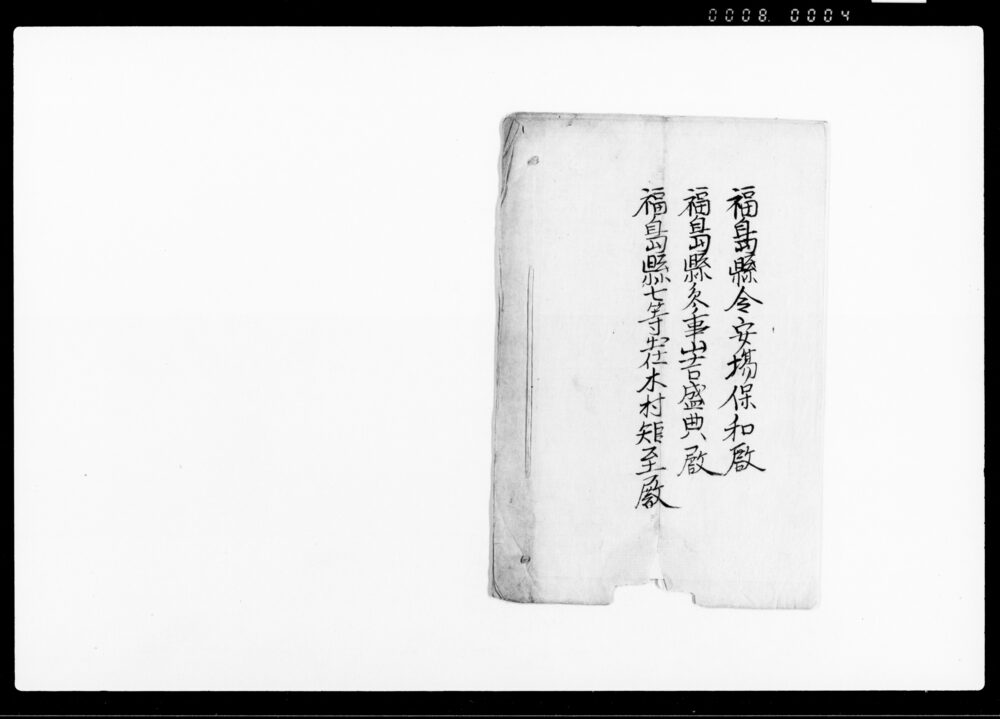 0008 0004
福島縣令安場保和殿
福島縣参事山吉盛典殿
福島縣七等出仕木村矩至殿